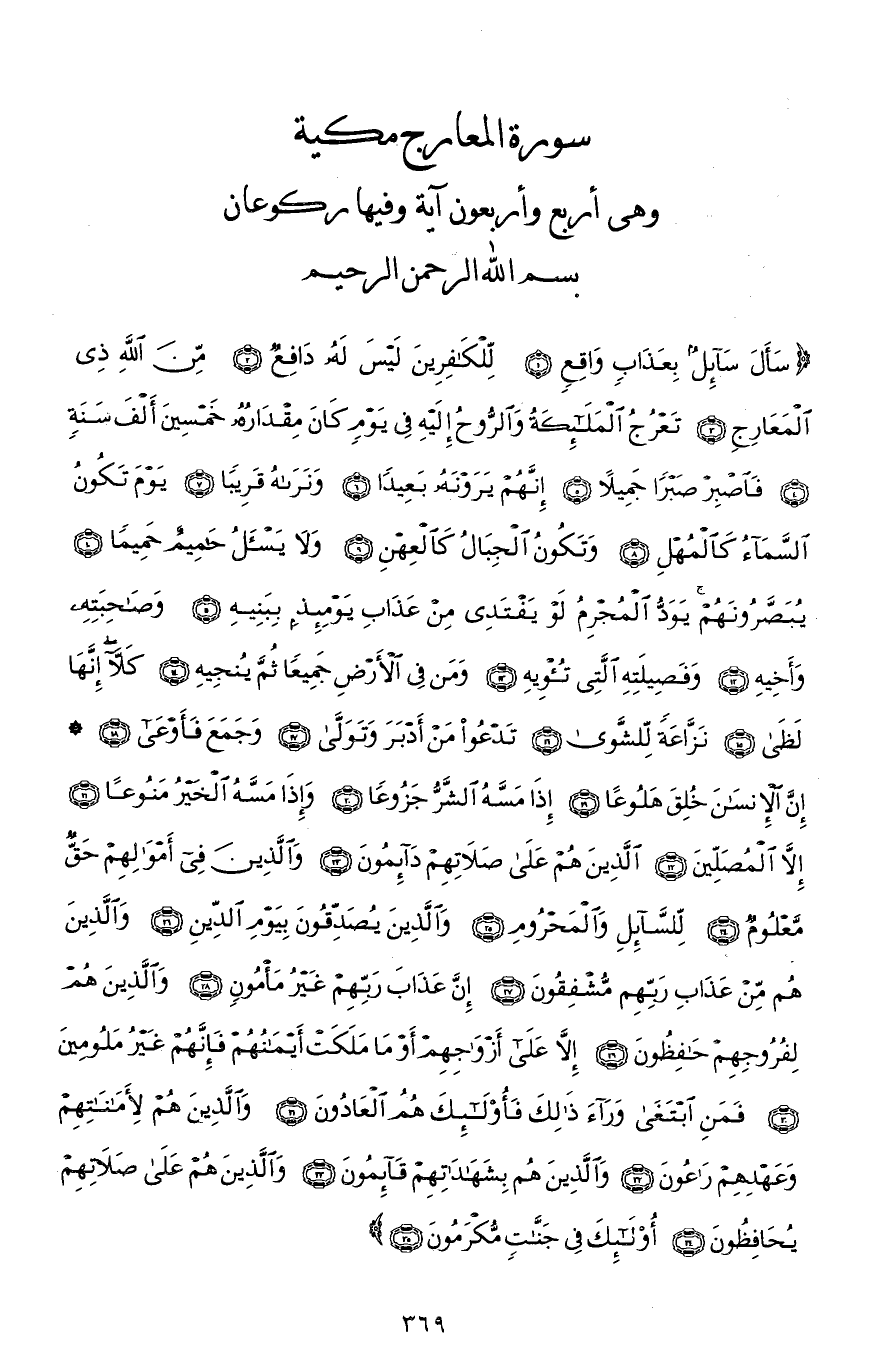 سورة المعارج مكية
وهى أربع وأربعون آية وفيها ركوعان
بسم الله الرحمن الرحيم
﴿ سَأَلَ سَآئِلٌۢ بِعَذَابٍ وَاقِعٍ ﴿١﴾ لِّلْكَـٰفِرِينَ لَيْسَ لَهُۥ دَافِعٌ ﴿٢﴾ مِّنَ ٱللَّهِ ذِى
ٱلْمَعَارِجِ ﴿٣﴾ تَعْرُجُ ٱلْمَلَـٰٓئِكَةُ وَٱلرُّوحُ إِلَيْهِ فِى يَوْمٍ كَانَ مِقْدَارُهُۥ خَمْسِينَ أَلْفَ سَنَةٍ
﴿٤﴾ فَٱصْبِرْ صَبْرًا جَمِيلًا ﴿٥﴾ إِنَّهُمْ يَرَوْنَهُۥ بَعِيدًا ﴿٦﴾ وَنَرَىٰهُ قَرِيبًا ﴿٧﴾ يَوْمَ تَكُونُ
ٱلسَّمَآءُ كَٱلْمُهْلِ ﴿٨﴾ وَتَكُونُ ٱلْجِبَالُ كَٱلْعِهْنِ ﴿٩﴾ وَلَا يَسْـَٔلُ حَمِيمٌ حَمِيمًا ﴿٤﴾
يُبَصَّرُونَهُمْ ۚ يَوَدُّ ٱلْمُجْرِمُ لَوْ يَفْتَدِى مِنْ عَذَابِ يَوْمِئِذٍۭ بِبَنِيهِ ﴿٥﴾ وَصَـٰحِبَتِهِۦ
وَأَخِيهِ ﴿١٢﴾ وَفَصِيلَتِهِ ٱلَّتِى تُـْٔوِيهِ ﴿١٣﴾ وَمَن فِى ٱلْأَرْضِ جَمِيعًا ثُمَّ يُنجِيهِ ﴿١٤﴾ كَلَّآ ۖ إِنَّهَا
لَظَىٰ ﴿١٥﴾ نَزَّاعَةً لِّلشَّوَىٰ ﴿١٦﴾ تَدْعُوا۟ مَنْ أَدْبَرَ وَتَوَلَّىٰ ﴿١٧﴾ وَجَمَعَ فَأَوْعَىٰٓ ﴿١٨﴾ *
إِنَّ ٱلْإِنسَـٰنَ خُلِقَ هَلُوعًا ﴿١٩﴾ إِذَا مَسَّهُ ٱلشَّرُّ جَزُوعًا ﴿٢٠﴾ وَإِذَا مَسَّهُ ٱلْخَيْرُ مَنُوعًا ﴿٢١﴾
إِلَّا ٱلْمُصَلِّينَ ﴿٢٢﴾ ٱلَّذِينَ هُمْ عَلَىٰ صَلَاتِهِمْ دَآئِمُونَ ﴿٢٣﴾ وَٱلَّذِينَ فِىٓ أَمْوَٰلِهِمْ حَقٌّ
مَّعْلُومٌ ﴿٢٤﴾ لِّلسَّآئِلِ وَٱلْمَحْرُومِ ﴿٢٥﴾ وَٱلَّذِينَ يُصَدِّقُونَ بِيَوْمِ ٱلدِّينِ ﴿٢٦﴾ وَٱلَّذِينَ
هُم مِّنْ عَذَابِ رَبِّهِم مُّشْفِقُونَ ﴿٢٧﴾ إِنَّ عَذَابَ رَبِّهِمْ غَيْرُ مَأْمُونٍ ﴿٢٨﴾ وَٱلَّذِينَ هُمْ
لِفُرُوجِهِمْ حَـٰفِظُونَ ﴿٢٩﴾ إِلَّا عَلَىٰٓ أَزْوَٰجِهِمْ أَوْ مَا مَلَكَتْ أَيْمَـٰنُهُمْ فَإِنَّهُمْ غَيْرُ مَلُومِينَ
﴿٣٠﴾ فَمَنِ ٱبْتَغَىٰ وَرَآءَ ذَٰلِكَ فَأُو۟لَـٰٓئِكَ هُمُ ٱلْعَادُونَ ﴿٣١﴾ وَٱلَّذِينَ هُمْ لِأَمَـٰنَـٰتِهِمْ
وَعَهْدِهِمْ رَٰعُونَ ﴿٣٢﴾ وَٱلَّذِينَ هُم بِشَهَـٰدَٰتِهِمْ قَآئِمُونَ ﴿٣٣﴾ وَٱلَّذِينَ هُمْ عَلَىٰ صَلَاتِهِمْ
يُحَافِظُونَ ﴿٣٤﴾ أُو۟لَـٰٓئِكَ فِى جَنَّـٰتٍ مُّكْرَمُونَ ﴿٣٥﴾ ﴾
٣٦٩